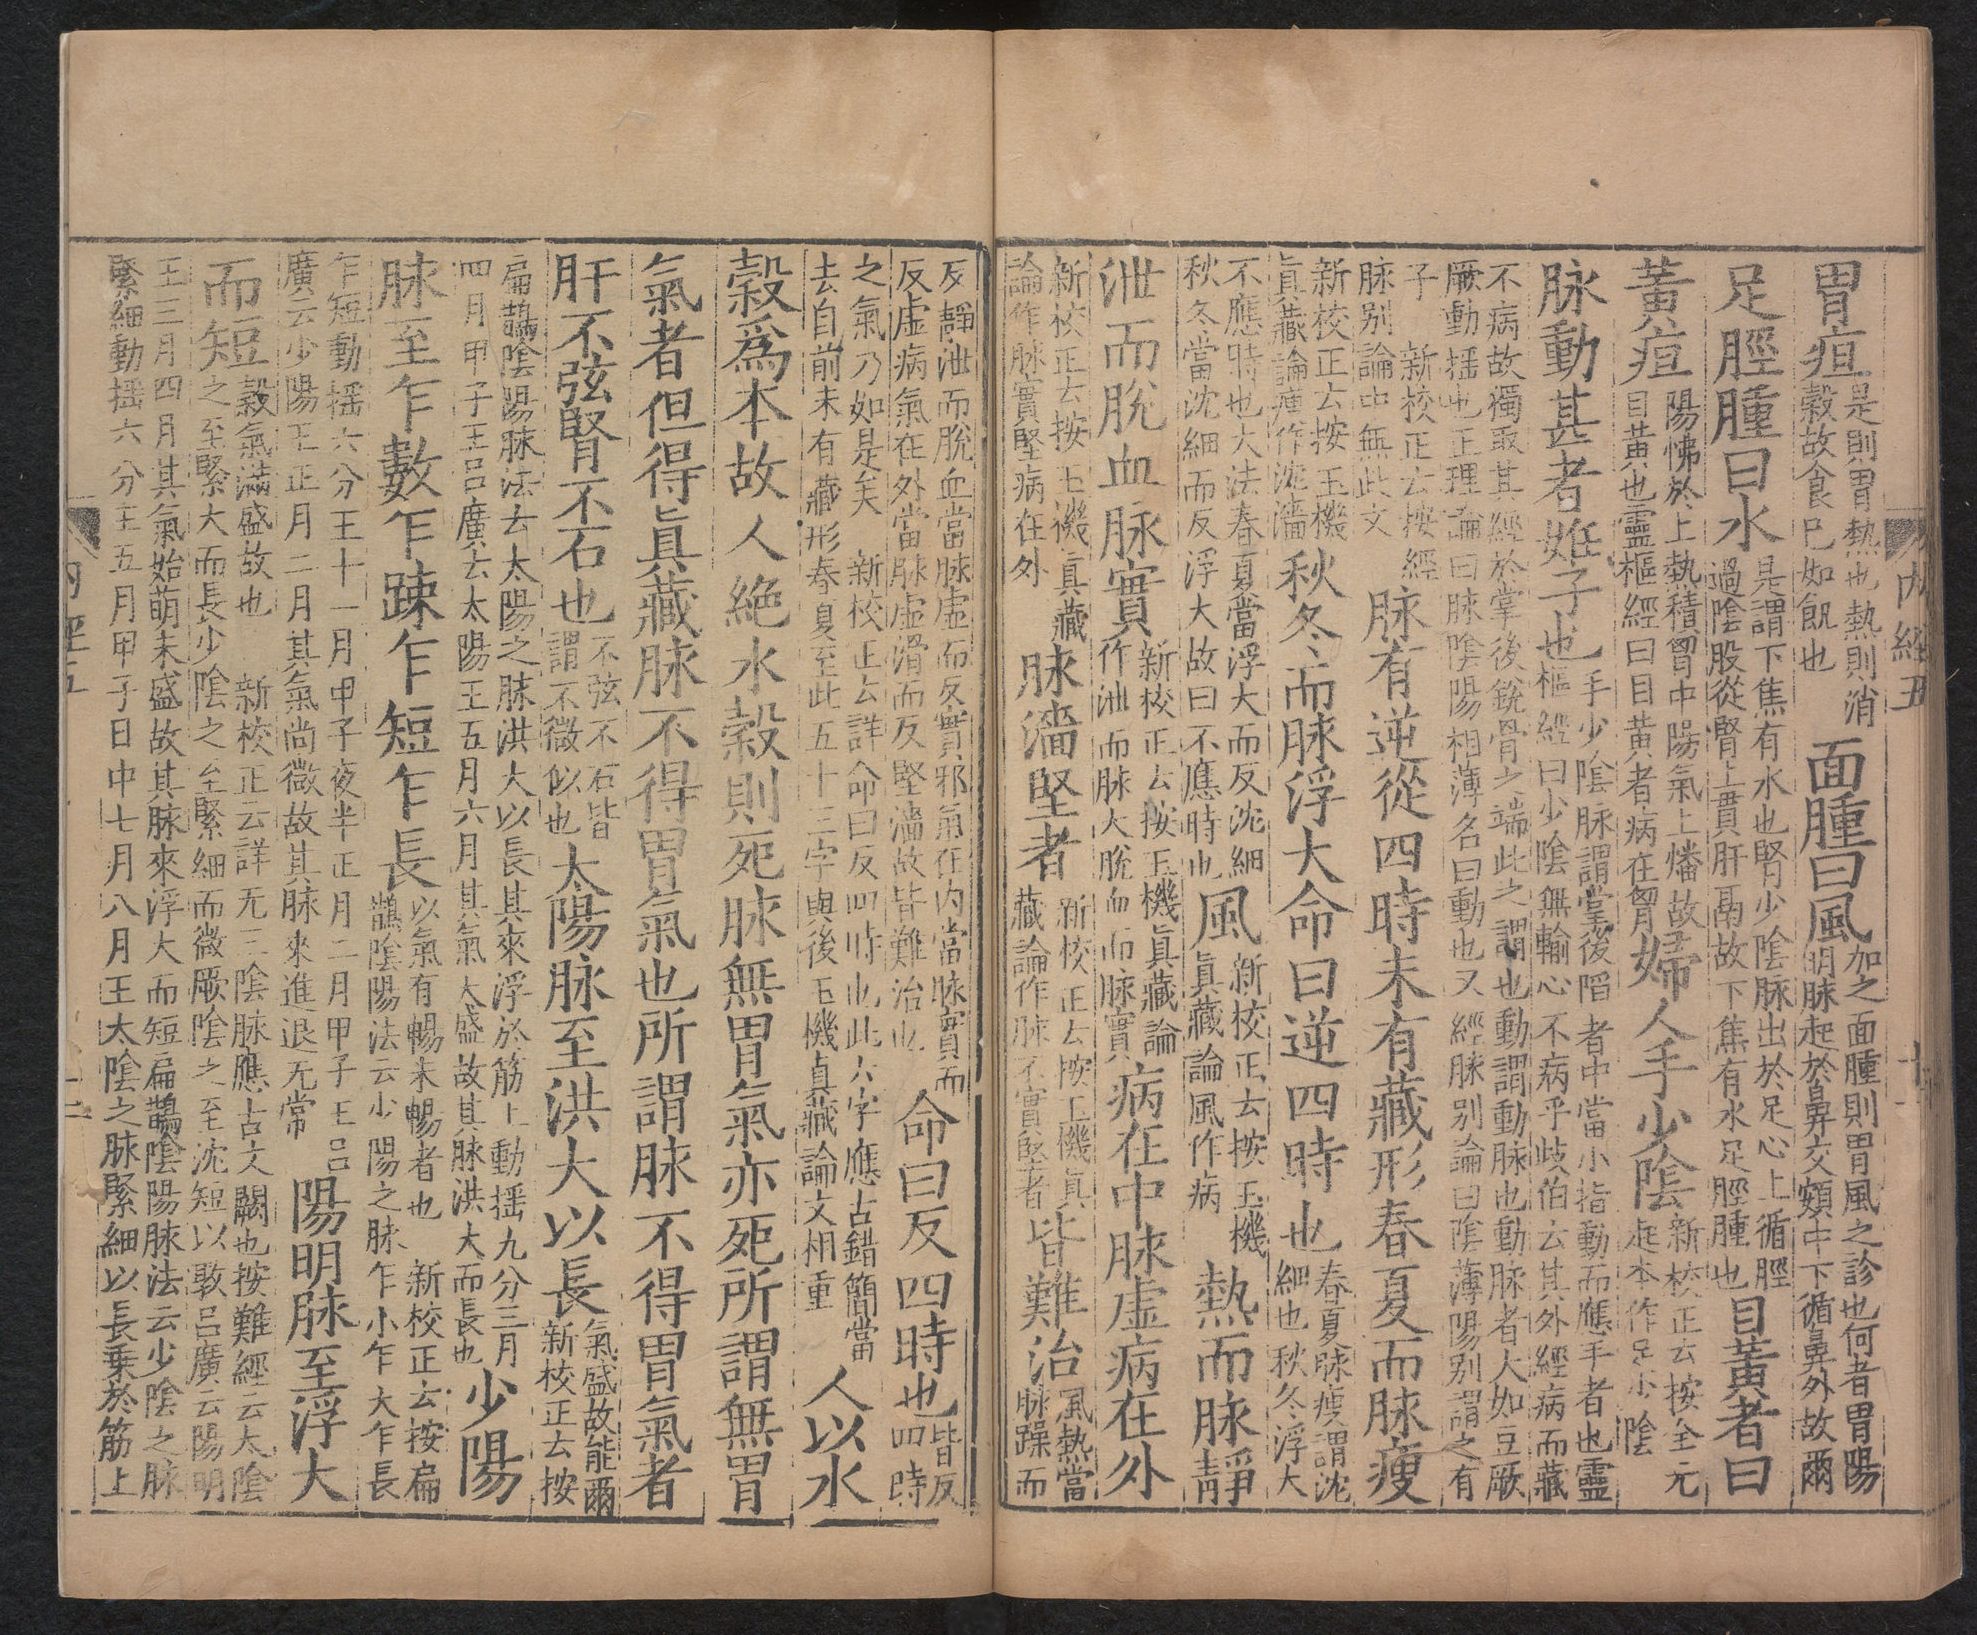 胃疸是則胃熱也熱則消
穀故食已如飢也面腫曰風加之面腫則胃風之診也何者胃陽
明脉起於鼻交頞中下循鼻外故爾
足脛腫曰水是謂下焦有水也腎少陰脉出於足心上循脛
過陰股從腎上貫肝鬲故下焦有水足脛腫也目黃者曰
黃疸陽怫於上熱積胷中陽氣上燔故
目黃也靈樞經曰目黃者病在胷婦人手少陰新校正云按全元
起本作足少陰
脉動甚者妊子也手少陰脉謂掌後陷者中當小指動而應手者也靈
樞經曰少陰無輸心不病乎歧伯云其外經病而藏
不病故獨取其經於掌後銳骨之端此之謂也動謂動脉也動脉者大如豆厥
厥動摇也正理論曰脉陰陽相薄名曰動也又經脉别論曰陰薄陽别謂之有
子　新校正云按經
脉别論中無此文脉有逆從四時未有藏形春夏而脉瘦
新校正云按玉機
真藏論瘦作沈濇秋冬而脉浮大命曰逆四時也春夏脉瘦謂沈
細也秋冬浮大
不應時也大法春夏當浮大而反沈細
秋冬當沈細而反浮大故曰不應時也風新校正云按玉機
真藏論風作病熱而脉靜
泄而脫血脉實新校正云按玉機真藏論
作泄而脉大脫血而脉實病在中脉虛病在外
新校正云按玉機真藏
論作脉實堅病在外脉濇堅者新校正云按玉機真
藏論作脉不實堅者皆難治風熱當
脉躁而
反靜泄而脫血當脉虛而反實邪氣在内當脉實而
反虛病氣在外當脉虛滑而反堅濇故皆難治也命曰反四時也皆反
四時
之氣乃如是矣　新校正云詳命曰反四時也此六字應古錯簡當
去自前未有藏形春夏至此五十三字與後玉機真藏論文相重人以水
穀爲本故人絶水穀則死脉無胃氣亦死所謂無胃
氣者但得真藏脉不得胃氣也所謂脉不得胃氣者
肝不弦腎不石也不弦不石皆
謂不微似也太陽脉至洪大以長氣盛故能爾
新校正云按
扁鵲陰陽脉法云太陽之脉洪大以長其來浮於筋上動摇九分三月
四月甲子王呂廣云太陽王五月六月其氣大盛故其脉洪大而長也少陽
脉至乍數乍踈乍短乍長以氣有暢未暢者也　新校正云按扁
鵲陰陽法云少陽之脉乍小乍大乍長
乍短動摇六分王十一月甲子夜半正月二月甲子王呂
廣云少陽王正月二月其氣尚微故其脉來進退无常陽明脉至浮大
而短穀氣滿盛故也　新校正云詳无三陰脉應古文闕也按難經云太陰
之至緊大而長少陰之至緊細而微厥陰之至沈短以敦呂廣云陽明
王三月四月其氣始萌未盛故其脉來浮大而短扁鵲陰陽脉法云少陰之脉
緊細動摇六分王五月甲子日中七月八月王太陰之脉緊細以長乗於筋上
内經五
内經五